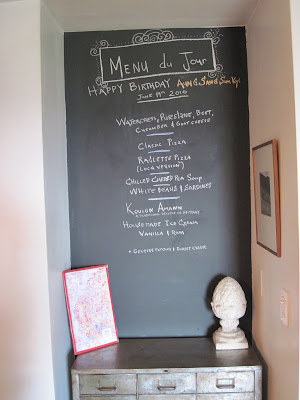 MENU du JOUR
HAPPY BIRTHDAY ANN
JUNE 19TH 2010
WATERCRESS, PURSLANE, BEET,
CUCUMBER & GOAT CHEESE
CLASSIC PIZZA
RACLETTE PIZZA
(LOCAL VERSION)
CHILLED PEA SOUP
WHITE BEANS & SARDINES
KOUIGN AMANN
A TRADITIONAL DESSERT OF BRITTANY
HOMEMADE ICE CREAM
VANILLA & RUM